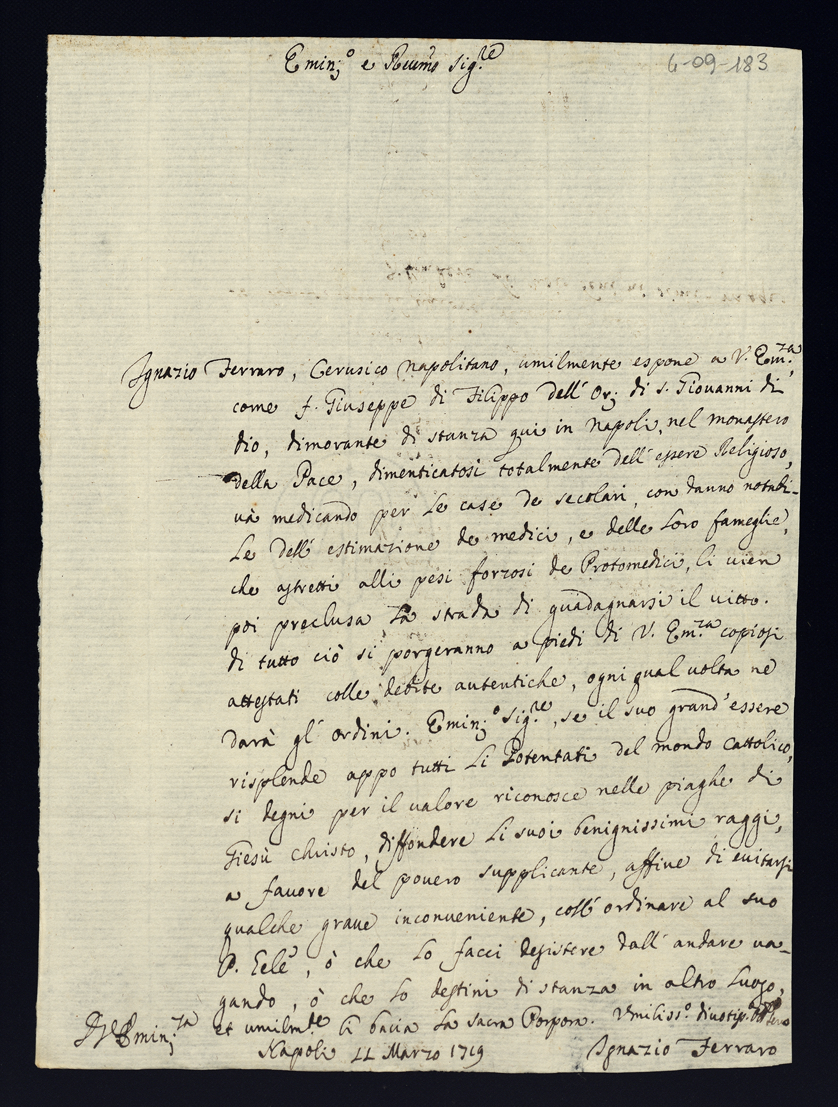 Emin.º e Reumo Sig.re
6-09-183
Ignazio Ferraro, Cerusico Napolitano, umilmente espone a V. Em.za,
come f. Giuseppe di Filippo dell' Or: di S. Giovanni di
Dio, dimorante di stanza qui in Napoli, nel monastero
della Pace, dimenticatosi totalmente dell' essere Religioso,
và medicando per le case de secolari, con danno notabi-
le dell' estimazione de medici, e delle loro fameglie,
che astretti alli pesi forzosi de Protomedici, li vien
poi preclusa la strada di guadagnarsi il vitto.
di tutto ciò si porgeranno a piedi di V. Em.za copiosi
attestati colle debite autentiche, ogni qual volta ne
darà gl' ordini. Emin.º Sig.re, se il suo grand' essere
risplende appo tutti li Potentati del mondo cattolico,
si degni per il valore riconosce nelle piaghe di
Giesù Christo, diffondere li suoi benignissimi raggi,
a favore del povero supplicante, affine di evitarsi
qualche grave inconveniente, coll' ordinare al suo
P. Gele, ò che lo facci desistere dall' andare va-
gando, ò che lo destini di stanza in altro luogo,
et umilm.te li bacia la sacra Porpora. Umiliss.º divotis.
Emin.za
Napoli 11 Marzo 1719
Ignazio Ferraro